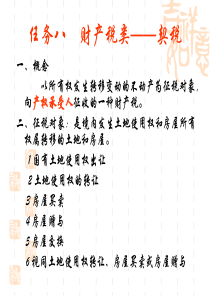 任务八 财产税类——契税
一、概念
以所有权发生转移变动的不动产为征税对象，
向产权承受人征收的一种财产税。
二、征税对象：是境内发生土地使用权和房屋所有
权属转移的土地和房屋。
1国有土地使用权出让
2土地使用权的转让
3房屋买卖
4房屋赠与
5房屋交换
6视同土地使用权转让、房屋买卖或房屋赠与